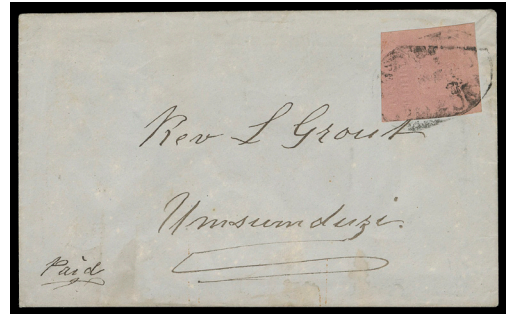 Rev L Grout
Umsumduzi.
Paid